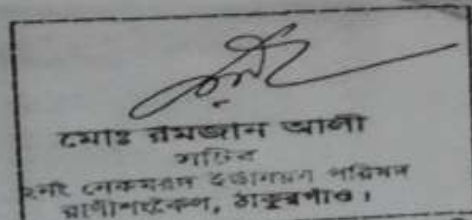 মোঃ রমজান আলী
সচিব
২নং নেকমরদ ইউনিয়ন পরিষদ
রাণীশংকৈল, ঠাকুরগাঁও।